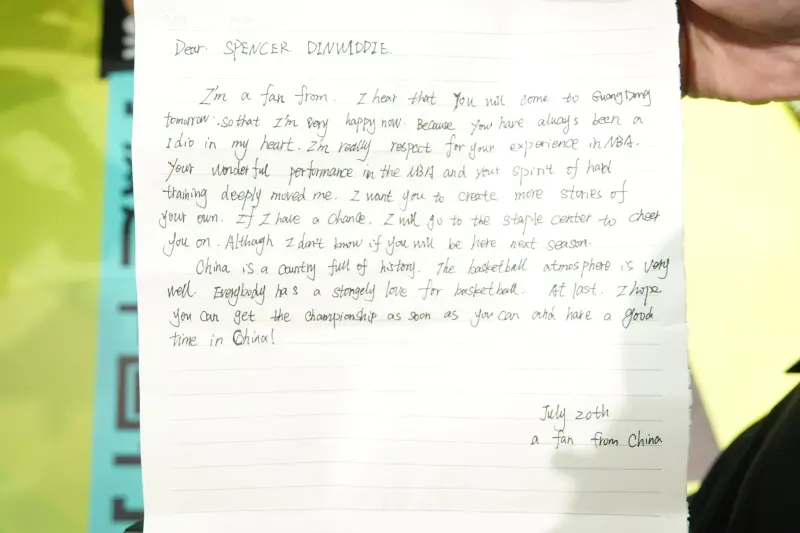 Dear SPENCER DINWIDDIE
I'm a fan from. I hear that you will come to GuangDong
tomorrow. so that I'm very happy now. Because you have always been a
Idio in my heart. I'm really respect for your experience in NBA.
Your wonderful performance in the NBA and your spirit of hard
training deeply moved me. I want you to create more stories of
your own. If I have a chance. I will go to the staple center to cheer
you on. Although I don't know if you will be here next season.
China is a country full of history. The basketball atmosphere is very
well. Everybody has a stongely love for basketball. At last. I hope
you can get the championship as soon as you can and have a good
time in China!
July 20th
a fan from China